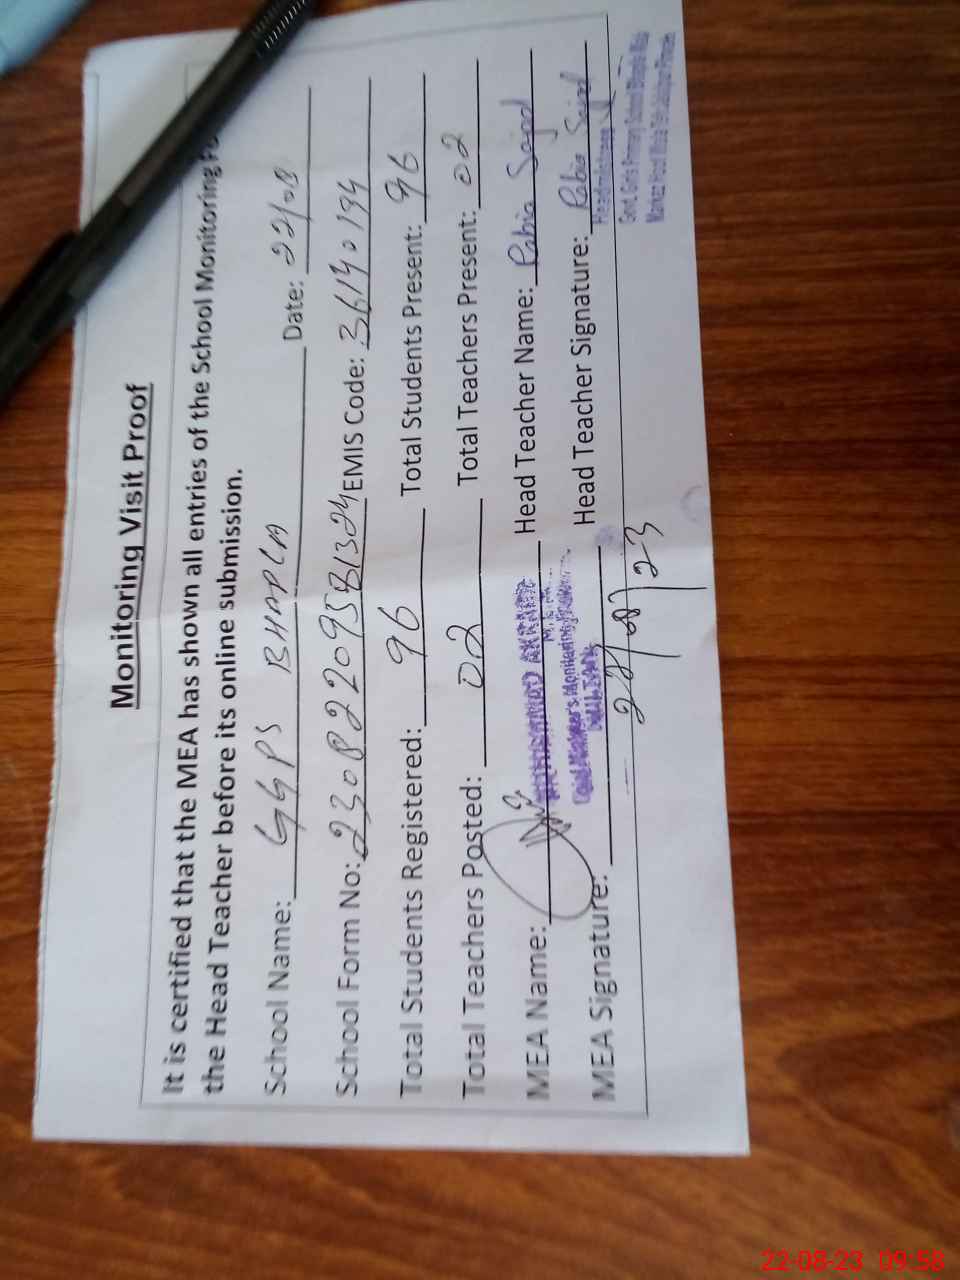 Monitoring Visit Proof
It is certified that the MEA has shown all entries of the School Monitoring
the Head Teacher before its online submission.
School Name: GGPS BHAPLA Date: 22/08
School Form No: 230822095B1324 EMIS Code: 36140194
Total Students Registered: 96 Total Students Present: 96
Total Teachers Posted: 02 Total Teachers Present: 02
MEA Name: MUHAMMAD AKRAM Head Teacher Name: Rabia Sajad
Chief Minister's Monitoring Force
MULTAN
MEA Signature: Head Teacher Signature: Rabia Sajad
Headmistress
Govt. Girls Primary School
22/08/23
22-08-23 09:58